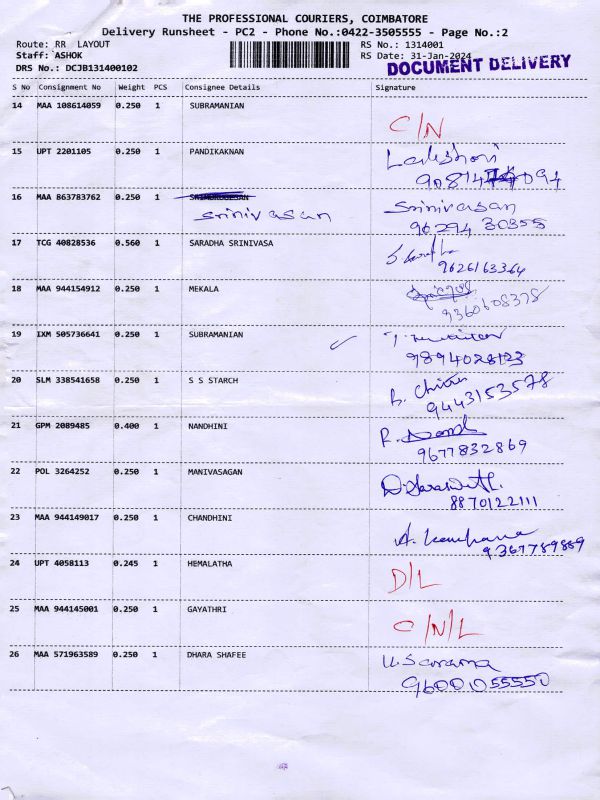 THE PROFESSIONAL COURIERS, COIMBATORE
Delivery Runsheet - PC2 - Phone No.:0422-3505555 - Page No.:2
Route: RR LAYOUT RS No.: 1314001
Staff: ASHOK RS Date: 31-Jan-2024
DRS No.: DCJB131400102 DOCUMENT DELIVERY
S No Consignment No Weight PCS Consignee Details Signature
14 MAA 108614059 0.250 1 SUBRAMANIAN
C/N
15 UPT 2201105 0.250 1 PANDIKAKNAN
16 MAA 863783762 0.250 1 SRIMURUGESAN Srinivasan
srinivasan 96294 30355
17 TCG 40828536 0.560 1 SARADHA SRINIVASA
9626163364
18 MAA 944154912 0.250 1 MEKALA
9360608378
19 IXM 505736641 0.250 1 SUBRAMANIAN
9894028123
20 SLM 338541658 0.250 1 S S STARCH
9443153578
21 GPM 2089485 0.400 1 NANDHINI
9677832869
22 POL 3264252 0.250 1 MANIVASAGAN
8870122111
23 MAA 944149017 0.250 1 CHANDHINI
9367789889
24 UPT 4058113 0.245 1 HEMALATHA
D/L
25 MAA 944145001 0.250 1 GAYATHRI
C/N/L
26 MAA 571963589 0.250 1 DHARA SHAFEE